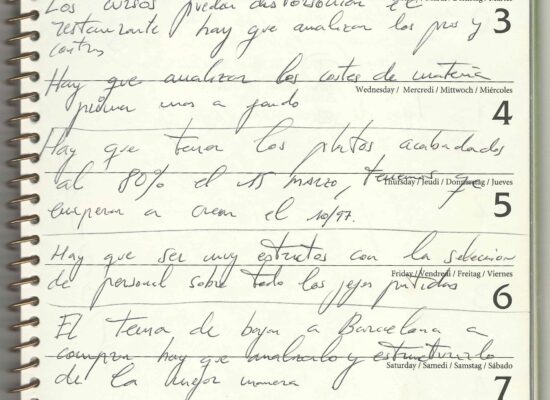 Los cursos puedan distorsionar el
restaurante hay que analizar los pros y
contras
3
Hay que analizar los costes de materia
Wednesday / Mercredi / Mittwoch / Miércoles
prima mas a fondo
4
Hay que tener los platos acabados
al 80% el 15 marzo, tenemos que
Thursday / Jeudi / Donnerstag / Jueves
empezar a crear el 10/97.
5
Hay que ser muy estrictos con la seleccion
Friday / Vendredi / Freitag / Viernes
de personal sobre todo los jefes partidas
6
El tema de bajar a Barcelona a
comprar hay que analizarlo y estructurarlo
Saturday / Samedi / Samstag / Sábado
de la mejor manera
7